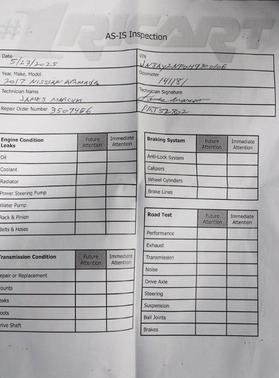 AS-IS Inspection
Date 5/23/2025
VIN
Year, Make, Model
2017 NISSAN ARMADA
Odometer
141181
Technician Name
JAMES MARCUM
Technician Signature
Repair Order Number 3507486
Engine Condition
Leaks
Future Attention
Immediate Attention
Oil
Coolant
Radiator
Power Steering Pump
Water Pump
Rack & Pinion
Belts & Hoses
Transmission Condition
Future Attention
Immediate Attention
Repair or Replacement
Mounts
Leaks
Boots
Drive Shaft
Braking System
Future Attention
Immediate Attention
Anti-Lock System
Calipers
Wheel Cylinders
Brake Lines
Road Test
Future Attention
Immediate Attention
Performance
Exhaust
Transmission
Noise
Drive Axle
Steering
Suspension
Ball Joints
Brakes